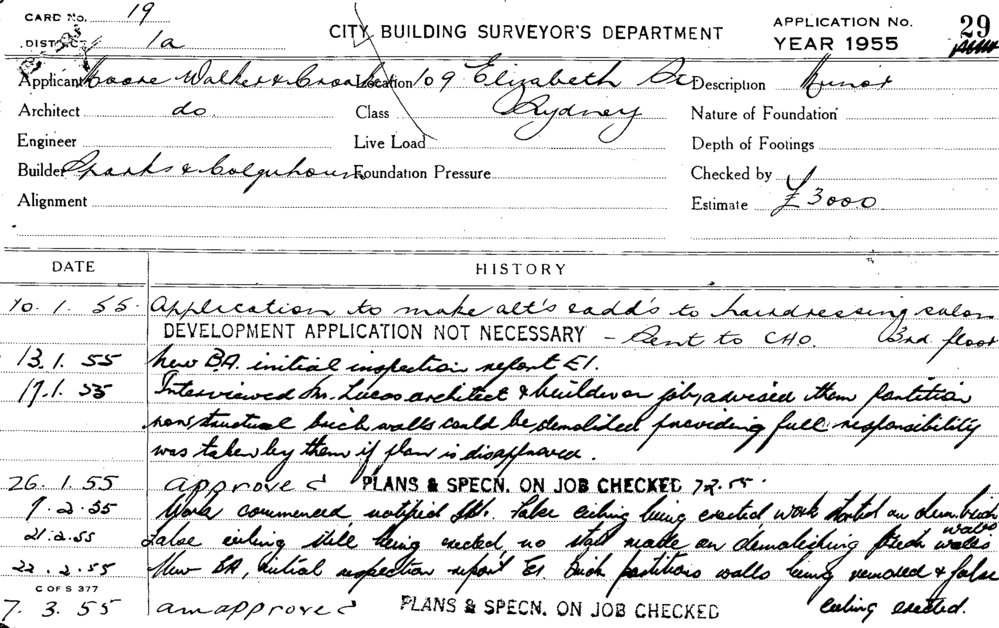 CARD No. 19
CITY BUILDING SURVEYOR'S DEPARTMENT
APPLICATION No. 29
DISTRICT 1a
YEAR 1955
Applicant Moore Walker & Croaker Location 109 Elizabeth St Description Minor
Architect do. Class Sydney Nature of Foundation
Engineer Live Load Depth of Footings
Builder Sparks & Colquhoun Foundation Pressure Checked by
Alignment Estimate £3000
DATE HISTORY
10. 1. 55. Application to make alt's & add's to hairdressing salon
DEVELOPMENT APPLICATION NOT NECESSARY - Sent to CHO. 3rd. floor
13. 1. 55 New B.A. initial inspection report E1.
17. 1. 55 Interviewed Mr. Lucas architect & builder on job, advised them partition
non structural brick walls could be demolished providing full responsibility
was taken by them if plan is disapproved.
26. 1. 55 approved PLANS & SPECN. ON JOB CHECKED 7.2.55.
9. 2. 55 Work commenced notified False ceiling being erected work started on dem. brick walls
21. 2. 55 False ceiling still being erected, no start made on demolishing brick walls
22. 2. 55 New BA, initial inspection report E1. Brick partitions walls being removed & false
C OF S 377
ceiling erected.
7. 3. 55 am approved PLANS & SPECN. ON JOB CHECKED